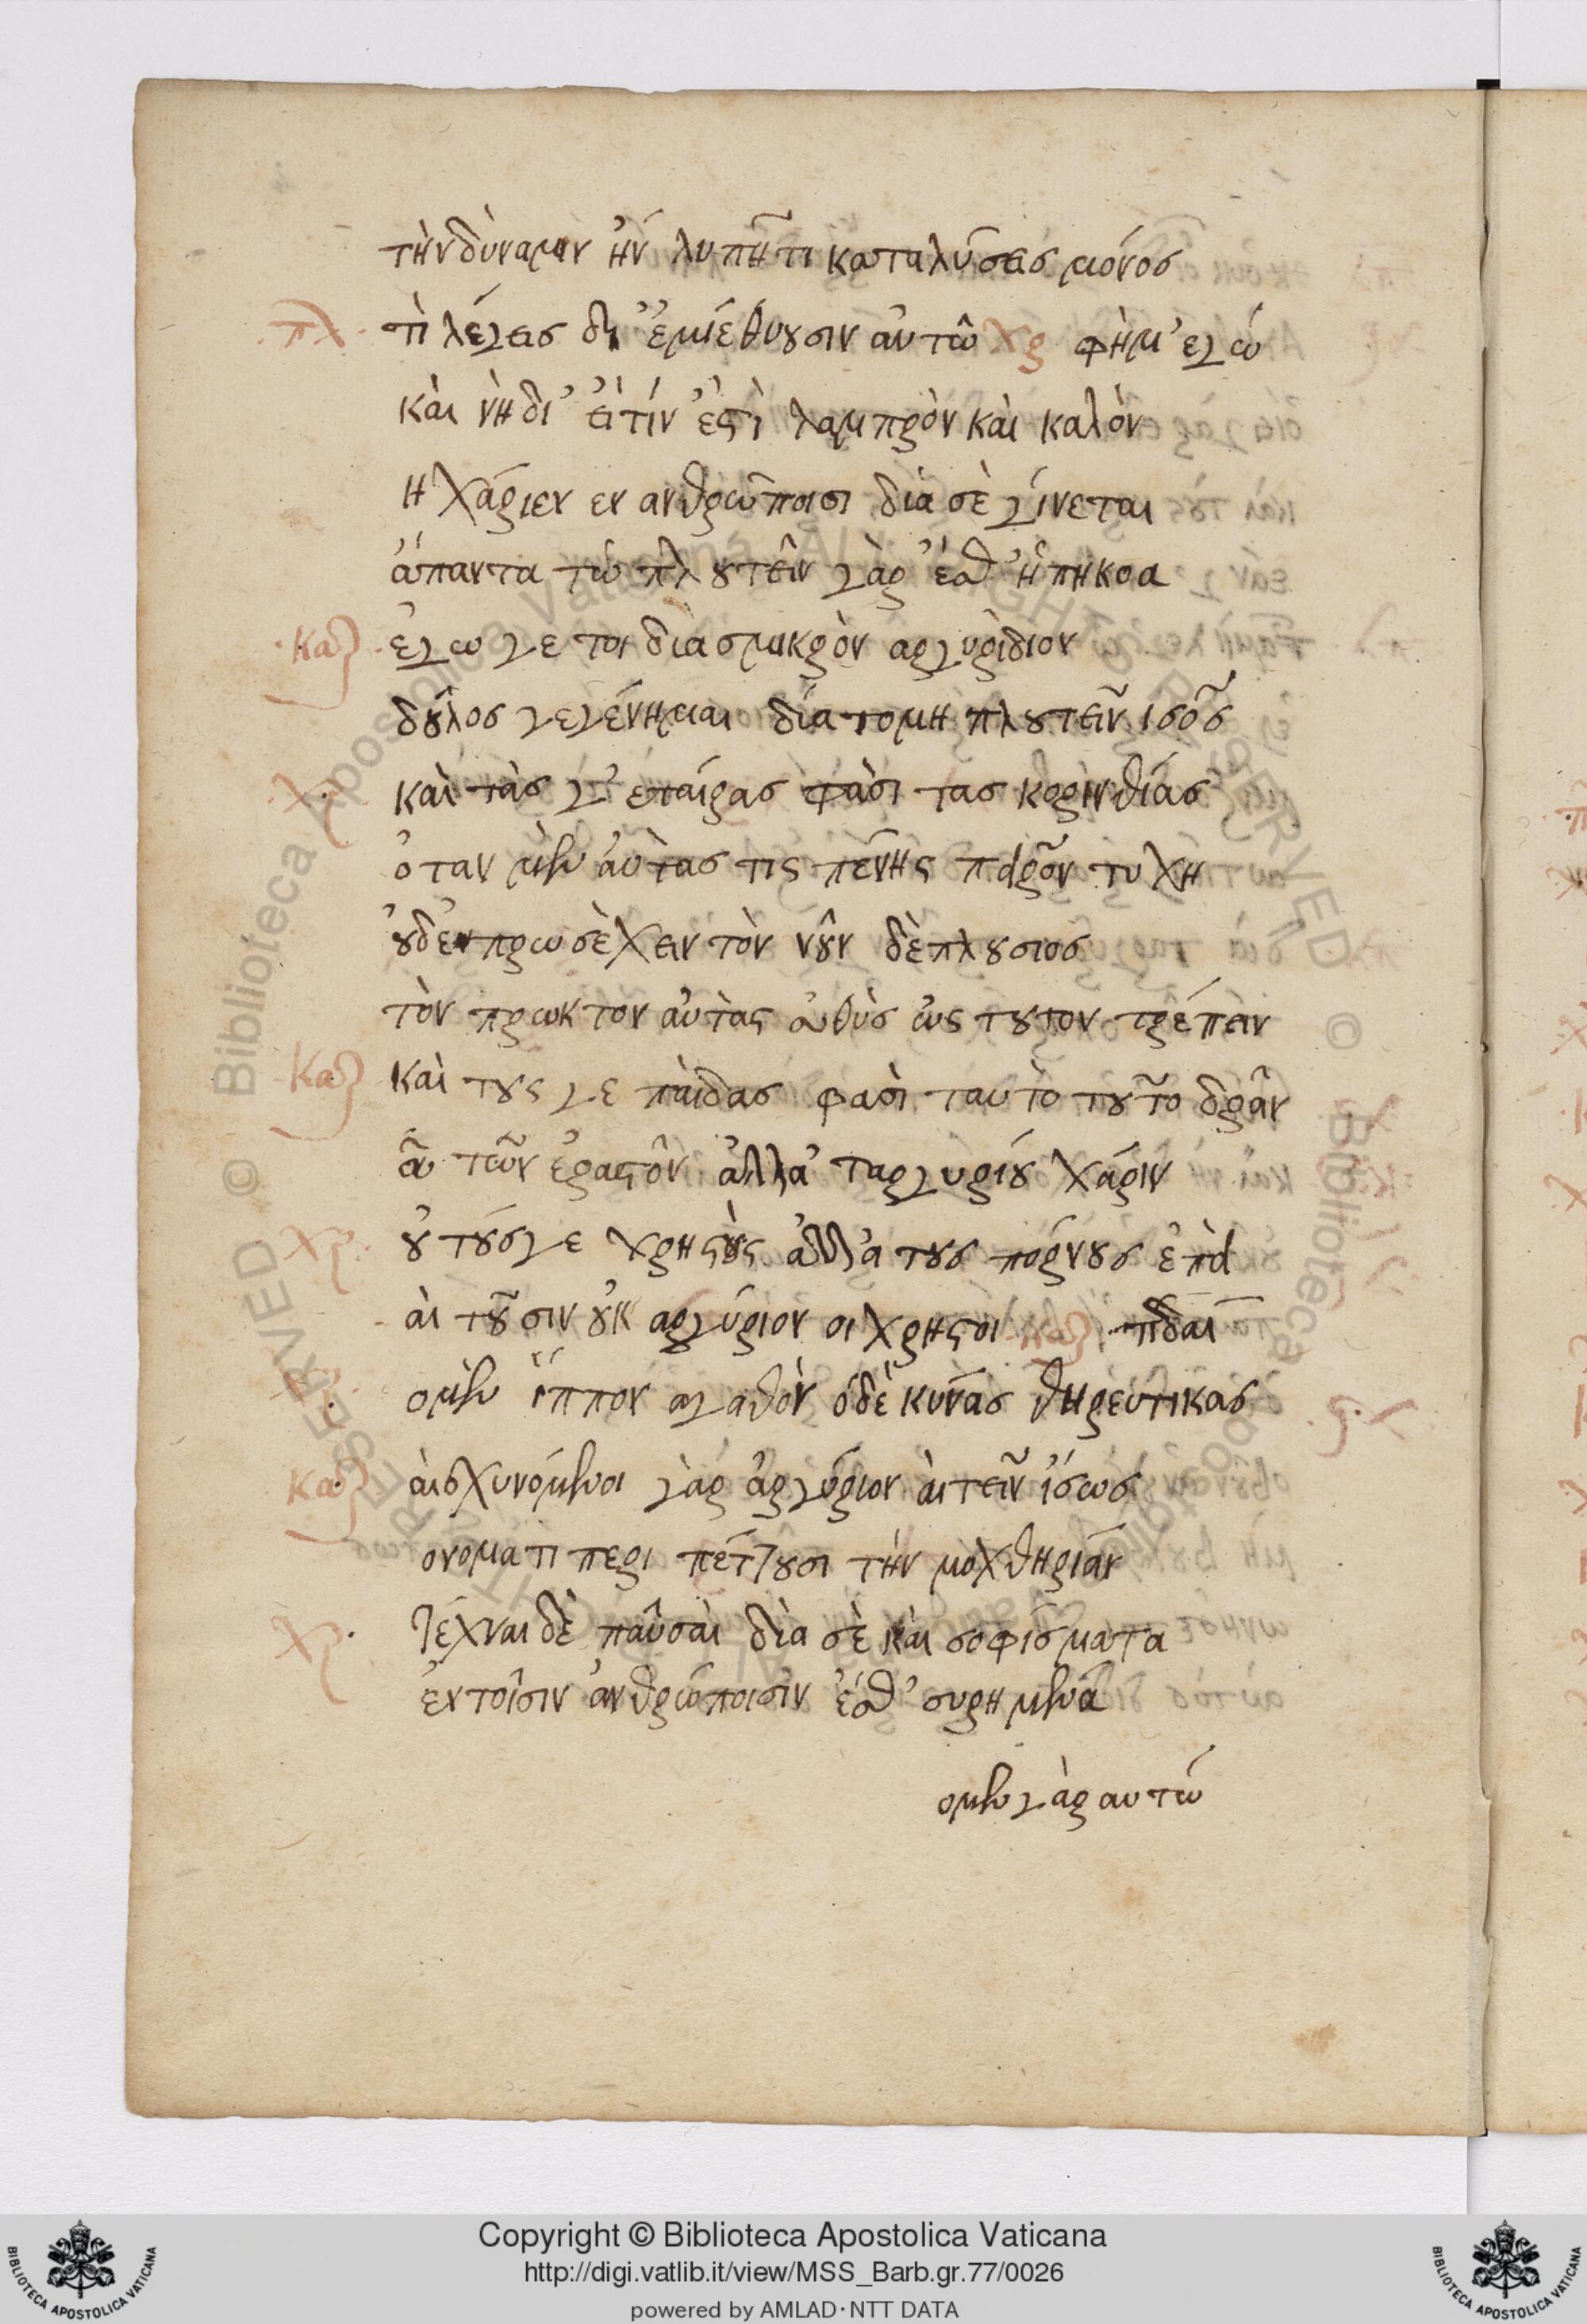 τὴν δύναμιν ἠν λυπῆ τι καταλύσεις μόνος
πλ τὶ λέγεις δι ἐμὲ θύουσιν αὐτῶ χρ φὴμ' εγώ
καὶ νὴ δι' εἰ τίν ἐστὶ λαμπρὸν καὶ καλὸν
η χάριεν εν ανθρώποισι διὰ σὲ γίνεται
ἅπαντα τῶ πλουτεῖν γὰρ ἐσθ' ὑπήκοα
καρ ἐγω γε τοι διὰ σμικρὸν αργυρίδιον
δοῦλος γεγένημαι διὰ το μη πλουτεῖν ισος
χρ καὶ τὰς γ' εταίρας φὰσι τας κορινθίας
ὁταν μὲν αὐτὰς τις πένης παρὸν τυχη
οὐδὲν προσέχειν τὸν νοῦν δὲ πλουσιος
τὸν πρωκτον αὐτὰς εὐθὺς ὡς τουτον τρέπειν
καρ καὶ τους γε παῖδας φασὶ ταυτὸ τοῦτο δρᾶν
οὐ τῶν ἐραστὸν ἀλλὰ ταργυρίου χάριν
χρ οὐ τούς γε χρηστοὺς ἀλλὰ τους πόρνους ἐπεὶ
αἰτοῦσιν οὐκ αργύριον οι χρηστοι καρ τί δαί
ο μὲν ἵππον αγαθὸν ὁ δὲ κύνας θηρευτικας
καρ αἰσχυνόμενοι γὰρ ἀργύριον αἰτεῖν ἴσως
ονοματι περιπέττουσι τὴν μοχθηρίαν
χρ τέχναι δὲ πᾶσαι διὰ σὲ καὶ σοφίσματα
ἐν τοῖσιν ἀνθρώποισιν ἐσθ' ευρημένα
ο μὲν γὰρ αυτῶ
Copyright © Biblioteca Apostolica Vaticana
http://digi.vatlib.it/view/MSS_Barb.gr.77/0026
powered by AMLAD·NTT DATA